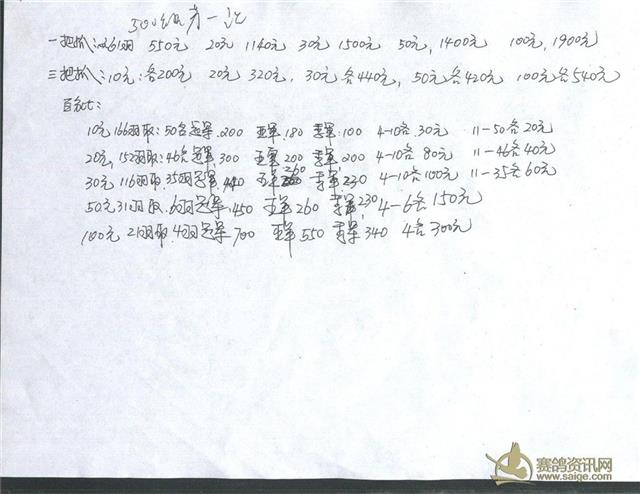 500级
一把抓: 10元 161羽 550元 20元 1140元 30元 1500元 50元, 1400元 100元, 1900元
三把抓: 10元: 各200元 20元 320元. 30元各440元, 50元各420元 100元各540元
百分比:
10元166羽取: 50名冠军.200 亚军.180 季军:100 4-10名.30元 11-50名20元
20元, 152羽取: 46名冠军.300 亚军200 季军.200 4-10名80元 11-46名40元
30元 116羽取.35羽冠军. 亚军260 季军.230 4-10名100元 11-35名60元
50元31羽取.6羽冠军.450 亚军260 季军230, 4-6名150元
100元 21羽取.4羽冠军700 亚军550 季军340 4名300元
赛鸽资讯网
www.saige.com